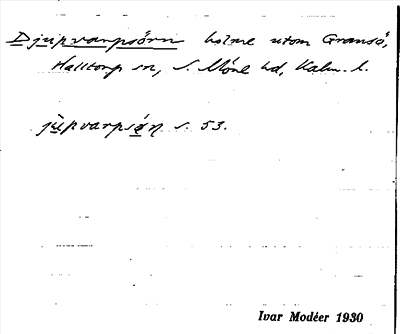 Djupvarpsörn holme utom Gransö,
Halltorp sn, S. Möre hd, Kalm. l.
jùpvarpsøɳ s. 53.
Ivar Modéer 1930